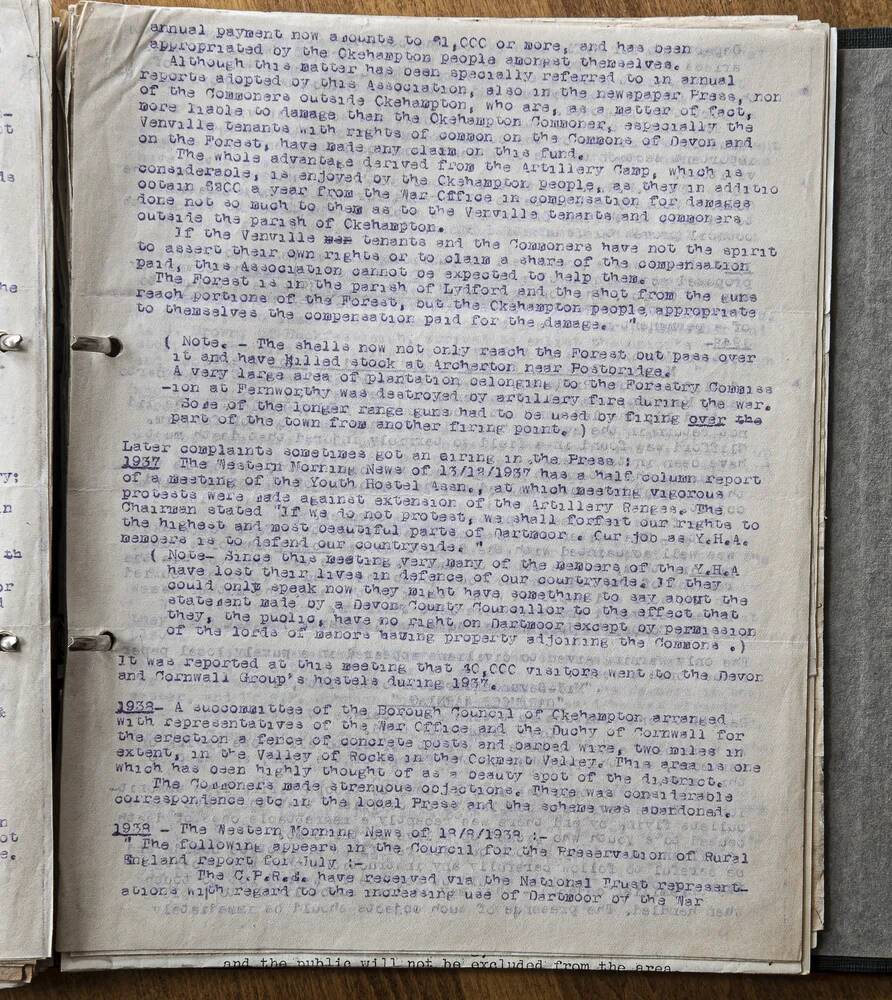 annual payment now amounts to £1,000 or more, and has been
appropriated by the Okehampton people amongst themselves.
Although this matter has been specially referred to in annual
reports adopted by this Association, also in the newspaper Press, non
of the Commoners outside Okehampton, who are, as a matter of fact,
more liable to damage than the Okehampton Commoner, especially the
Venville tenants with rights of common on the Commons of Devon and
on the Forest, have made any claim on this fund.
The whole advantage derived from the Artillery Camp, which is
considerable, is enjoyed by the Okehampton people, as they in additio
obtain £200 a year from the War Office in compensation for damages
done not so much to them as to the Venville tenants and commoners
outside the parish of Okehampton.
If the Venville men tenants and the Commoners have not the spirit
to assert their own rights or to claim a share of the compensation
paid, this Association cannot be expected to help them.
The Forest is in the parish of Lydford and the shot from the guns
reach portions of the Forest, but the Okehampton people appropriate
to themselves the compensation paid for the damage. "
( Note. - The shells now not only reach the Forest but pass over
it and have killed stock at Archerton near Postbridge.
A very large area of plantation belonging to the Forestry Commiss
-ion at Fernworthy was destroyed by artillery fire during the war.
Some of the longer range guns had to be used by firing over the
part of the town from another firing point. )
Later complaints sometimes got an airing in the Press :
1937 The Western Morning News of 13/12/1937 has a half column report
of a meeting of the Youth Hostel Assn., at which meeting vigorous
protests were made against extension of the Artillery Ranges. The
Chairman stated "If we do not protest, we shall forfeit our rights to
the highest and most beautiful parts of Dartmoor . Our job as Y.H.A.
members is to defend our countryside. "
( Note- Since this meeting very many of the members of the Y.H.A
have lost their lives in defence of our countryside. If they
could only speak now they might have something to say about the
statement made by a Devon County Councillor to the effect that
they, the public, have no right on Dartmoor except by permission
of the lords of manors having property adjoining the Commons .)
It was reported at this meeting that 40,000 visitors went to the Devon
and Cornwall Group's hostels during 1937.
1938- A subcommittee of the Borough Council of Okehampton arranged
with representatives of the War Office and the Duchy of Cornwall for
the erection a fence of concrete posts and barbed wire, two miles in
extent, in the Valley of Rocks in the Okment Valley. This area is one
which has been highly thought of as a beauty spot of the district.
The Commoners made strenuous objections. There was considerable
correspondence etc in the local Press and the scheme was abandoned.
1938 - The Western Morning News of 18/8/1938 :-
" The following appears in the Council for the Preservation of Rural
England report for July :-
The C.P.R.E. have received via the National Trust represent-
ations with regard to the increasing use of Dartmoor by the War
and the public will not be excluded from the area